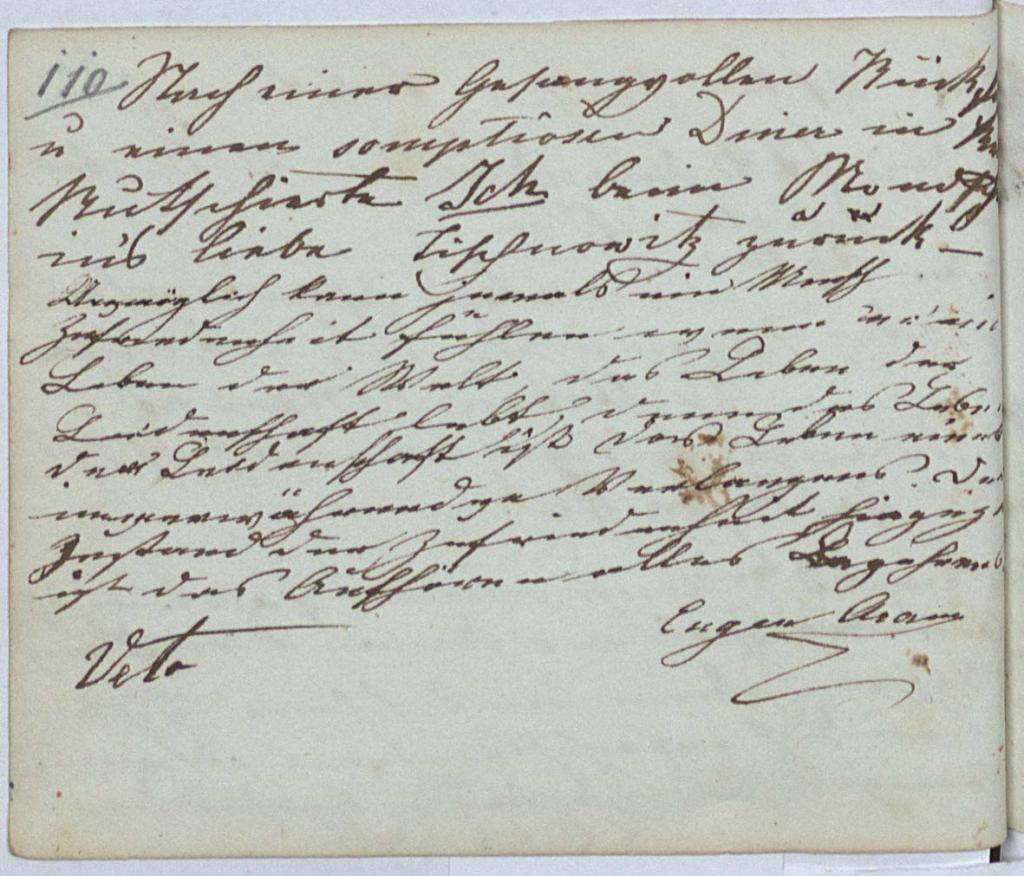 110 Nach einer Gesangvollen Rück
u einen somptiösen Diner in
Kutschierte Ich beim Mondsch
in's liebe Tischnowitz zurück –
Unmöglich kann jemals ein Mensch
Zufriedenheit fühlen wenn er ein
Leben der Welt, das Leben der
Leidenschaft lebt, denn das Leben
der Leidenschaft ist das Leben eines
immerwährenden Verlangens. Der
Zustand der Zufriedenheit hingegen
ist das Aufhören alles Begehrens
Eugen Aram
Veto